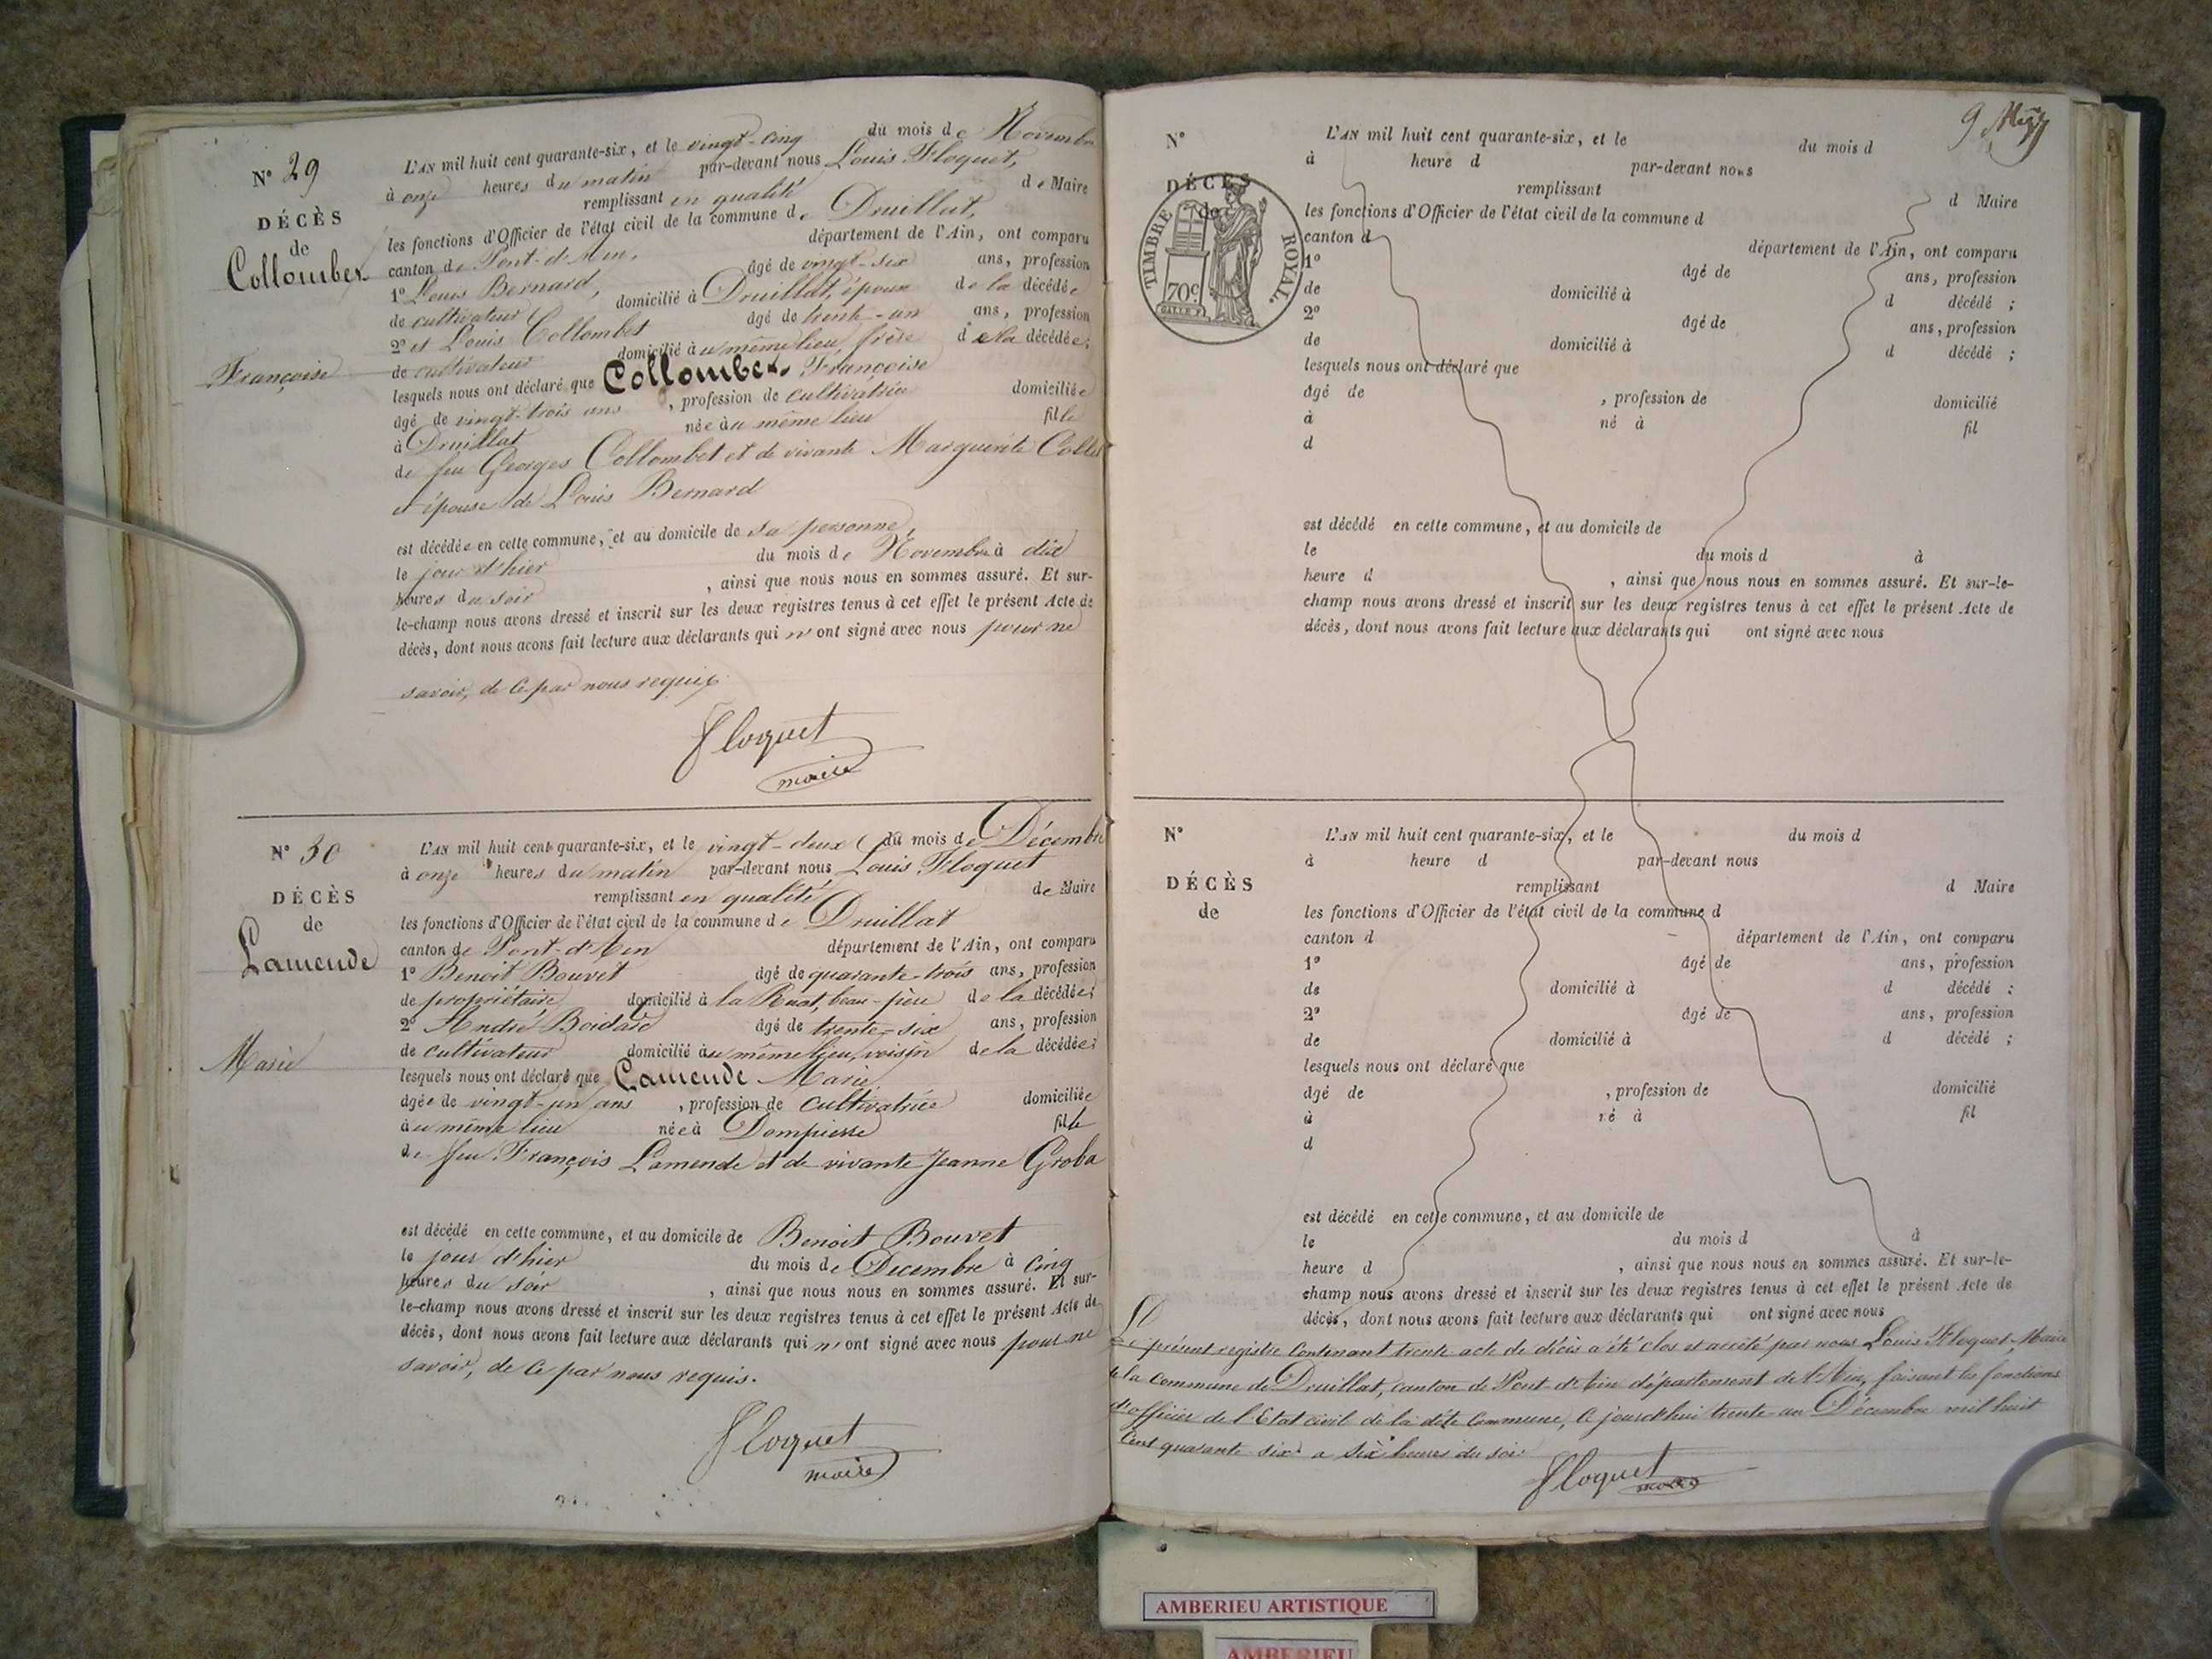 N° 29
DÉCÈS
de
Collombet
Françoise
L'AN mil huit cent quarante-six, et le vingt-cinq du mois de Novembre
à onze heures du matin par-devant nous Louis Floquet,
remplissant en qualité de Maire
les fonctions d'Officier de l'état civil de la commune de Druillat,
canton de Pont-d'Ain, département de l'Ain, ont comparu
1° Louis Bernard, âgé de vingt-six ans, profession
de cultivateur domicilié à Druillat, époux de la décédée
2° et Louis Collombet âgé de trente-un ans, profession
de cultivateur domicilié au même lieu frère de la décédée;
lesquels nous ont déclaré que Collombet Françoise
âgé de vingt-trois ans , profession de cultivatrice domiciliée
à Druillat née au même lieu fille
de feu Georges Collombet et de vivante Marguerite
et épouse de Louis Bernard
est décédée en cette commune, et au domicile de sa personne,
le jour d'hier du mois de Novembre à dix
heures du soir , ainsi que nous nous en sommes assuré. Et sur-
le-champ nous avons dressé et inscrit sur les deux registres tenus à cet effet le présent Acte de
décès, dont nous avons fait lecture aux déclarants qui n'ont signé avec nous pour ne
savoir, de ce par nous requis.
Floquet
maire
N° 30
DÉCÈS
de
Lamende
Marie
L'AN mil huit cent quarante-six, et le vingt-deux du mois de Décembre
à onze heures du matin par-devant nous Louis Floquet
remplissant en qualité de Maire
les fonctions d'Officier de l'état civil de la commune de Druillat
canton de Pont-d'Ain département de l'Ain, ont comparu
1° Benoit Bouvet âgé de quarante-trois ans, profession
de propriétaire domicilié à la Ruat, beau-père de la décédée;
2° André Boidard âgé de trente-six ans, profession
de cultivateur domicilié au même lieu, voisin de la décédée;
lesquels nous ont déclaré que Lamende Marie
âgée de vingt-un ans , profession de cultivatrice domiciliée
au même lieu née à Dompierre fille
de feu François Lamende et de vivante Jeanne Groba
est décédé en cette commune, et au domicile de Benoit Bouvet
le jour d'hier du mois de Decembre à cinq
heures du soir , ainsi que nous nous en sommes assuré. Et sur-
le-champ nous avons dressé et inscrit sur les deux registres tenus à cet effet le présent Acte de
décès, dont nous avons fait lecture aux déclarants qui n'ont signé avec nous pour ne
savoir, de ce par nous requis.
Floquet
maire
9
N°
DÉCÈS
de
TIMBRE ROYAL.
70c
L'AN mil huit cent quarante-six, et le du mois d
à heure d par-devant nous
remplissant d Maire
les fonctions d'Officier de l'état civil de la commune d
canton d département de l'Ain, ont comparu
1° âgé de ans, profession
de domicilié à d décédé ;
2° âgé de ans, profession
de domicilié à d décédé ;
lesquels nous ont déclaré que
âgé de , profession de domicilié
à né à fil
d
est décédé en cette commune, et au domicile de
le du mois d à
heure d , ainsi que nous nous en sommes assuré. Et sur-le-
champ nous avons dressé et inscrit sur les deux registres tenus à cet effet le présent Acte de
décès, dont nous avons fait lecture aux déclarants qui ont signé avec nous
N°
DÉCÈS
de
L'AN mil huit cent quarante-six, et le du mois d
à heure d par-devant nous
remplissant d Maire
les fonctions d'Officier de l'état civil de la commune d
canton d département de l'Ain, ont comparu
1° âgé de ans, profession
de domicilié à d décédé ;
2° âgé de ans, profession
de domicilié à d décédé ;
lesquels nous ont déclaré que
âgé de , profession de domicilié
à né à fil
d
est décédé en cette commune, et au domicile de
le du mois d à
heure d , ainsi que nous nous en sommes assuré. Et sur-le-
champ nous avons dressé et inscrit sur les deux registres tenus à cet effet le présent Acte de
décès, dont nous avons fait lecture aux déclarants qui ont signé avec nous
Le présent registre contenant trente acte de décès a été clos et arrêté par nous Louis Floquet, Maire
de la commune de Druillat, canton de Pont-d'Ain département de l'Ain, faisant les fonctions
d'officier de l'Etat civil de la dite Commune, ce jourd'hui trente-un Décembre mil huit
cent quarante six a six heures du soir
Floquet
maire
AMBERIEU ARTISTIQUE
AMBERIEU